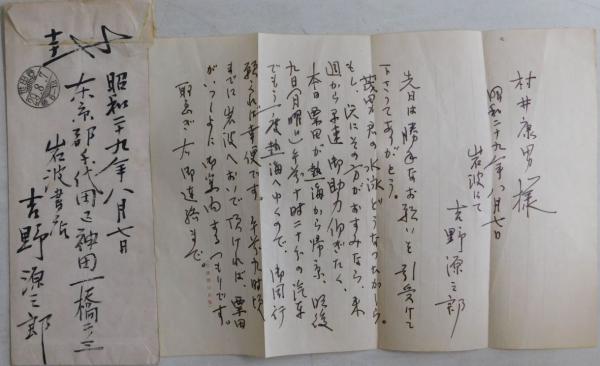 村井康男様
昭和二十九年八月七日
岩波にて
吉野源三郎
先日は勝手なお願いを引受けて
下さってありがとう。
君の水泳どうなったかしら。
もし、次にその方がおすみなら、来
週から早速御助力仰ぎたく、
本日粟田が熱海から帰京、明後
九日(月曜日)午前十時二十分の汽車
でもう一度熱海へゆくので、御同行
願えれば幸便です。午前九時頃
までに岩波へおいで頂ければ、粟田
がいっしょに御案内するつもりです。
取急ぎ右御連絡まで。
昭和二十九年八月七日
東京都千代田区神田一橋二ノ三
岩波書店
吉野源三郎